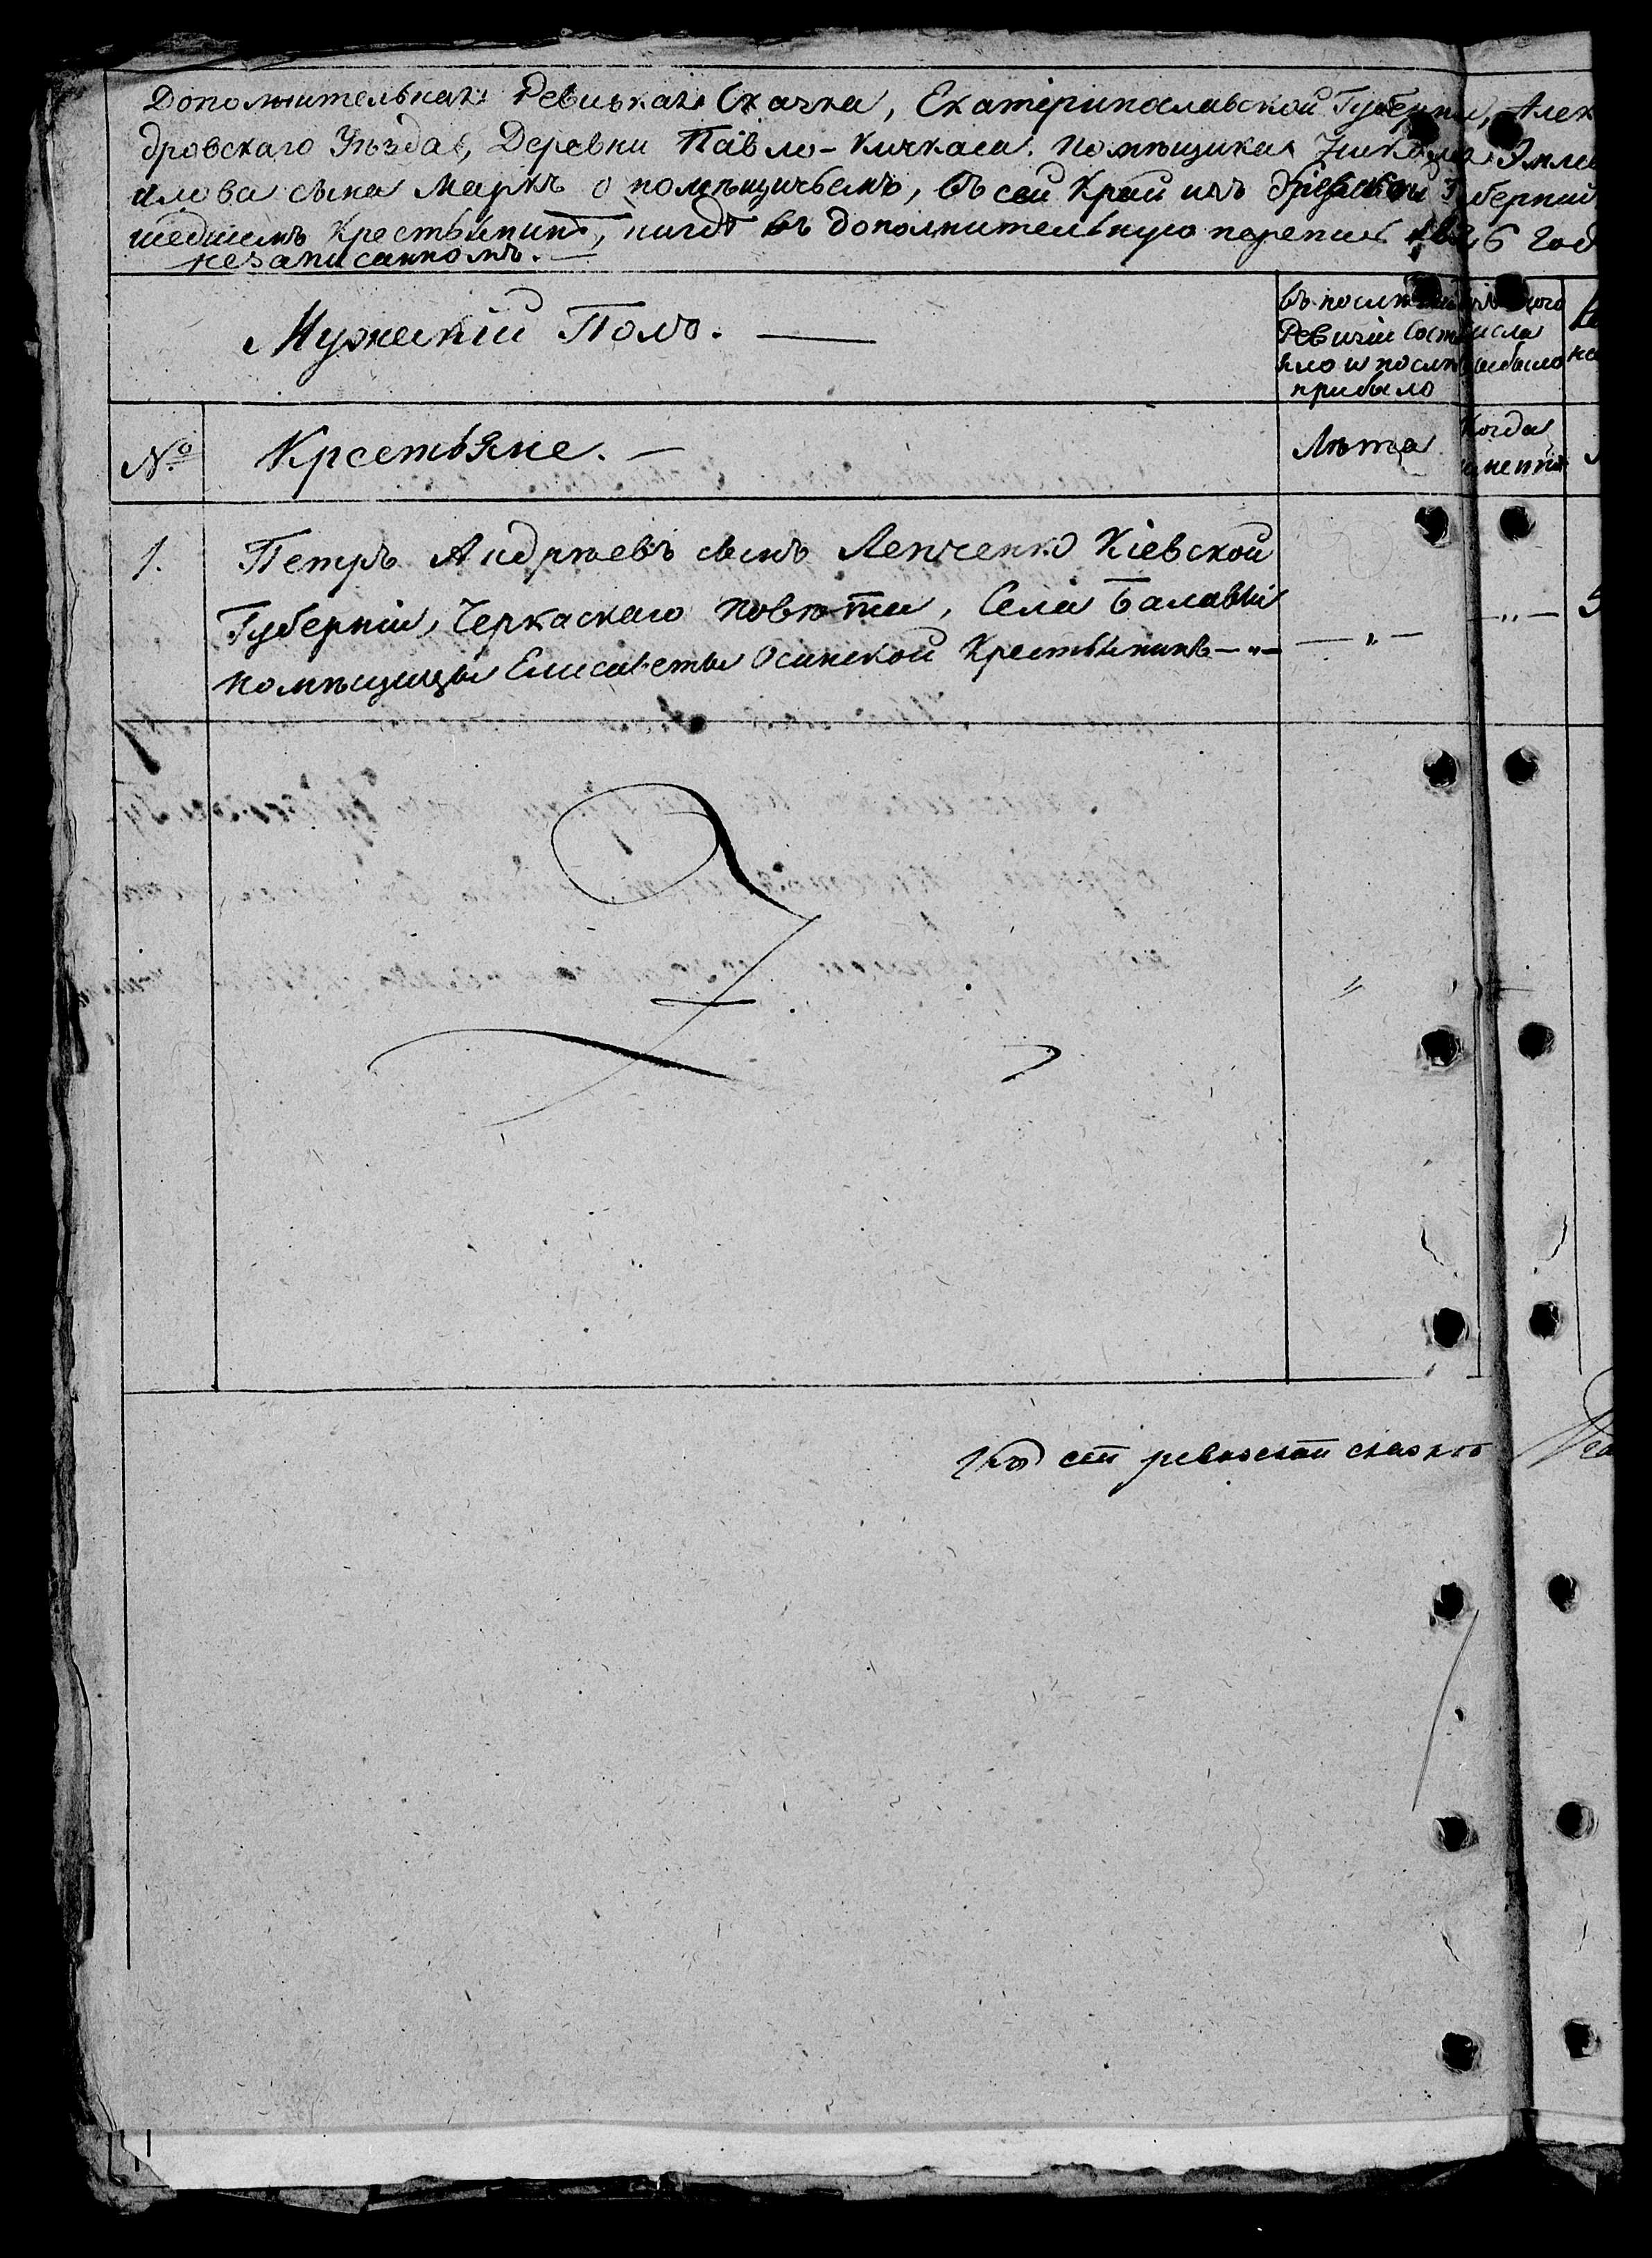 Дополнительная Ревизская Сказка, Екатеринославской Губерніи, Алек
дровскаго Уѣзда, Деревни Павло-Кичкаса. Помѣщика
сына Маркъ о помѣщичьемъ, въ сей Край изъ Губерніи
шедшемъ Крестьянинѣ, нигдѣ въ дополнительную перепись 1826 Год
незаписанномъ. —
Мужескій Полъ. —
въ послѣ
Ревизіи сост
яло и послѣ
прибыло
числа
выбыло
№ Крестьяне. — Лѣта Когда
1. Петръ Андрѣевъ сынъ Лепченко Кіевской
Губерніи, Черкаскаго повѣта, Села Балаклѣи
помѣщицы Елисаветы Осинской Крестьянинъ — „ — — „ — — „ — 5
Къ сей ревиской сказкѣ